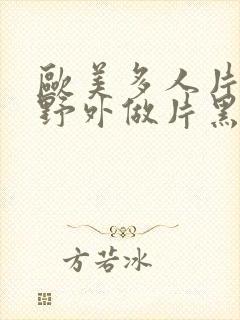 歐美多人片
野外做片黑
方若冰